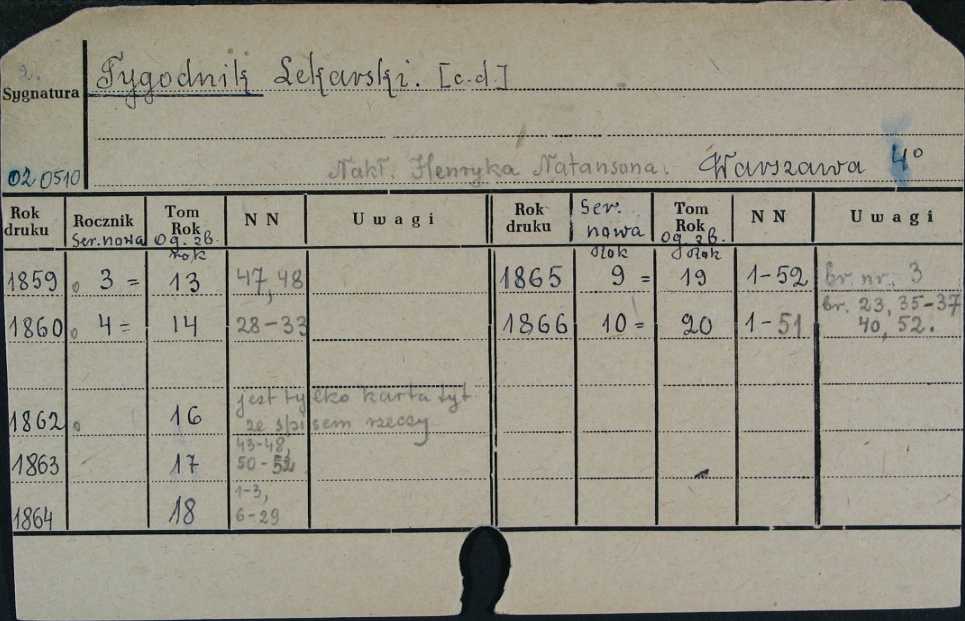 2.
Tygodnik Lekarski. [c.d.]
Sygnatura
Nakł. Henryka Natansona. Warszawa 4°
020510
Rok druku Rocznik Ser. nowa Tom Rok og. zb. Rok NN Uwagi Rok druku Ser. nowa Rok Tom Rok og. zb. Rok NN Uwagi
1859 o 3 = 13 47, 48 1865 9 = 19 1-52 br. nr. 3
1860 o 4 = 14 28-33 1866 10 = 20 1-51 br. 23, 35-37 40, 52.
1862 o 16 jest tylko karta tyt. ze spisem rzeczy
1863 17 43-48, 50-52
1864 18 1-3, 6-29